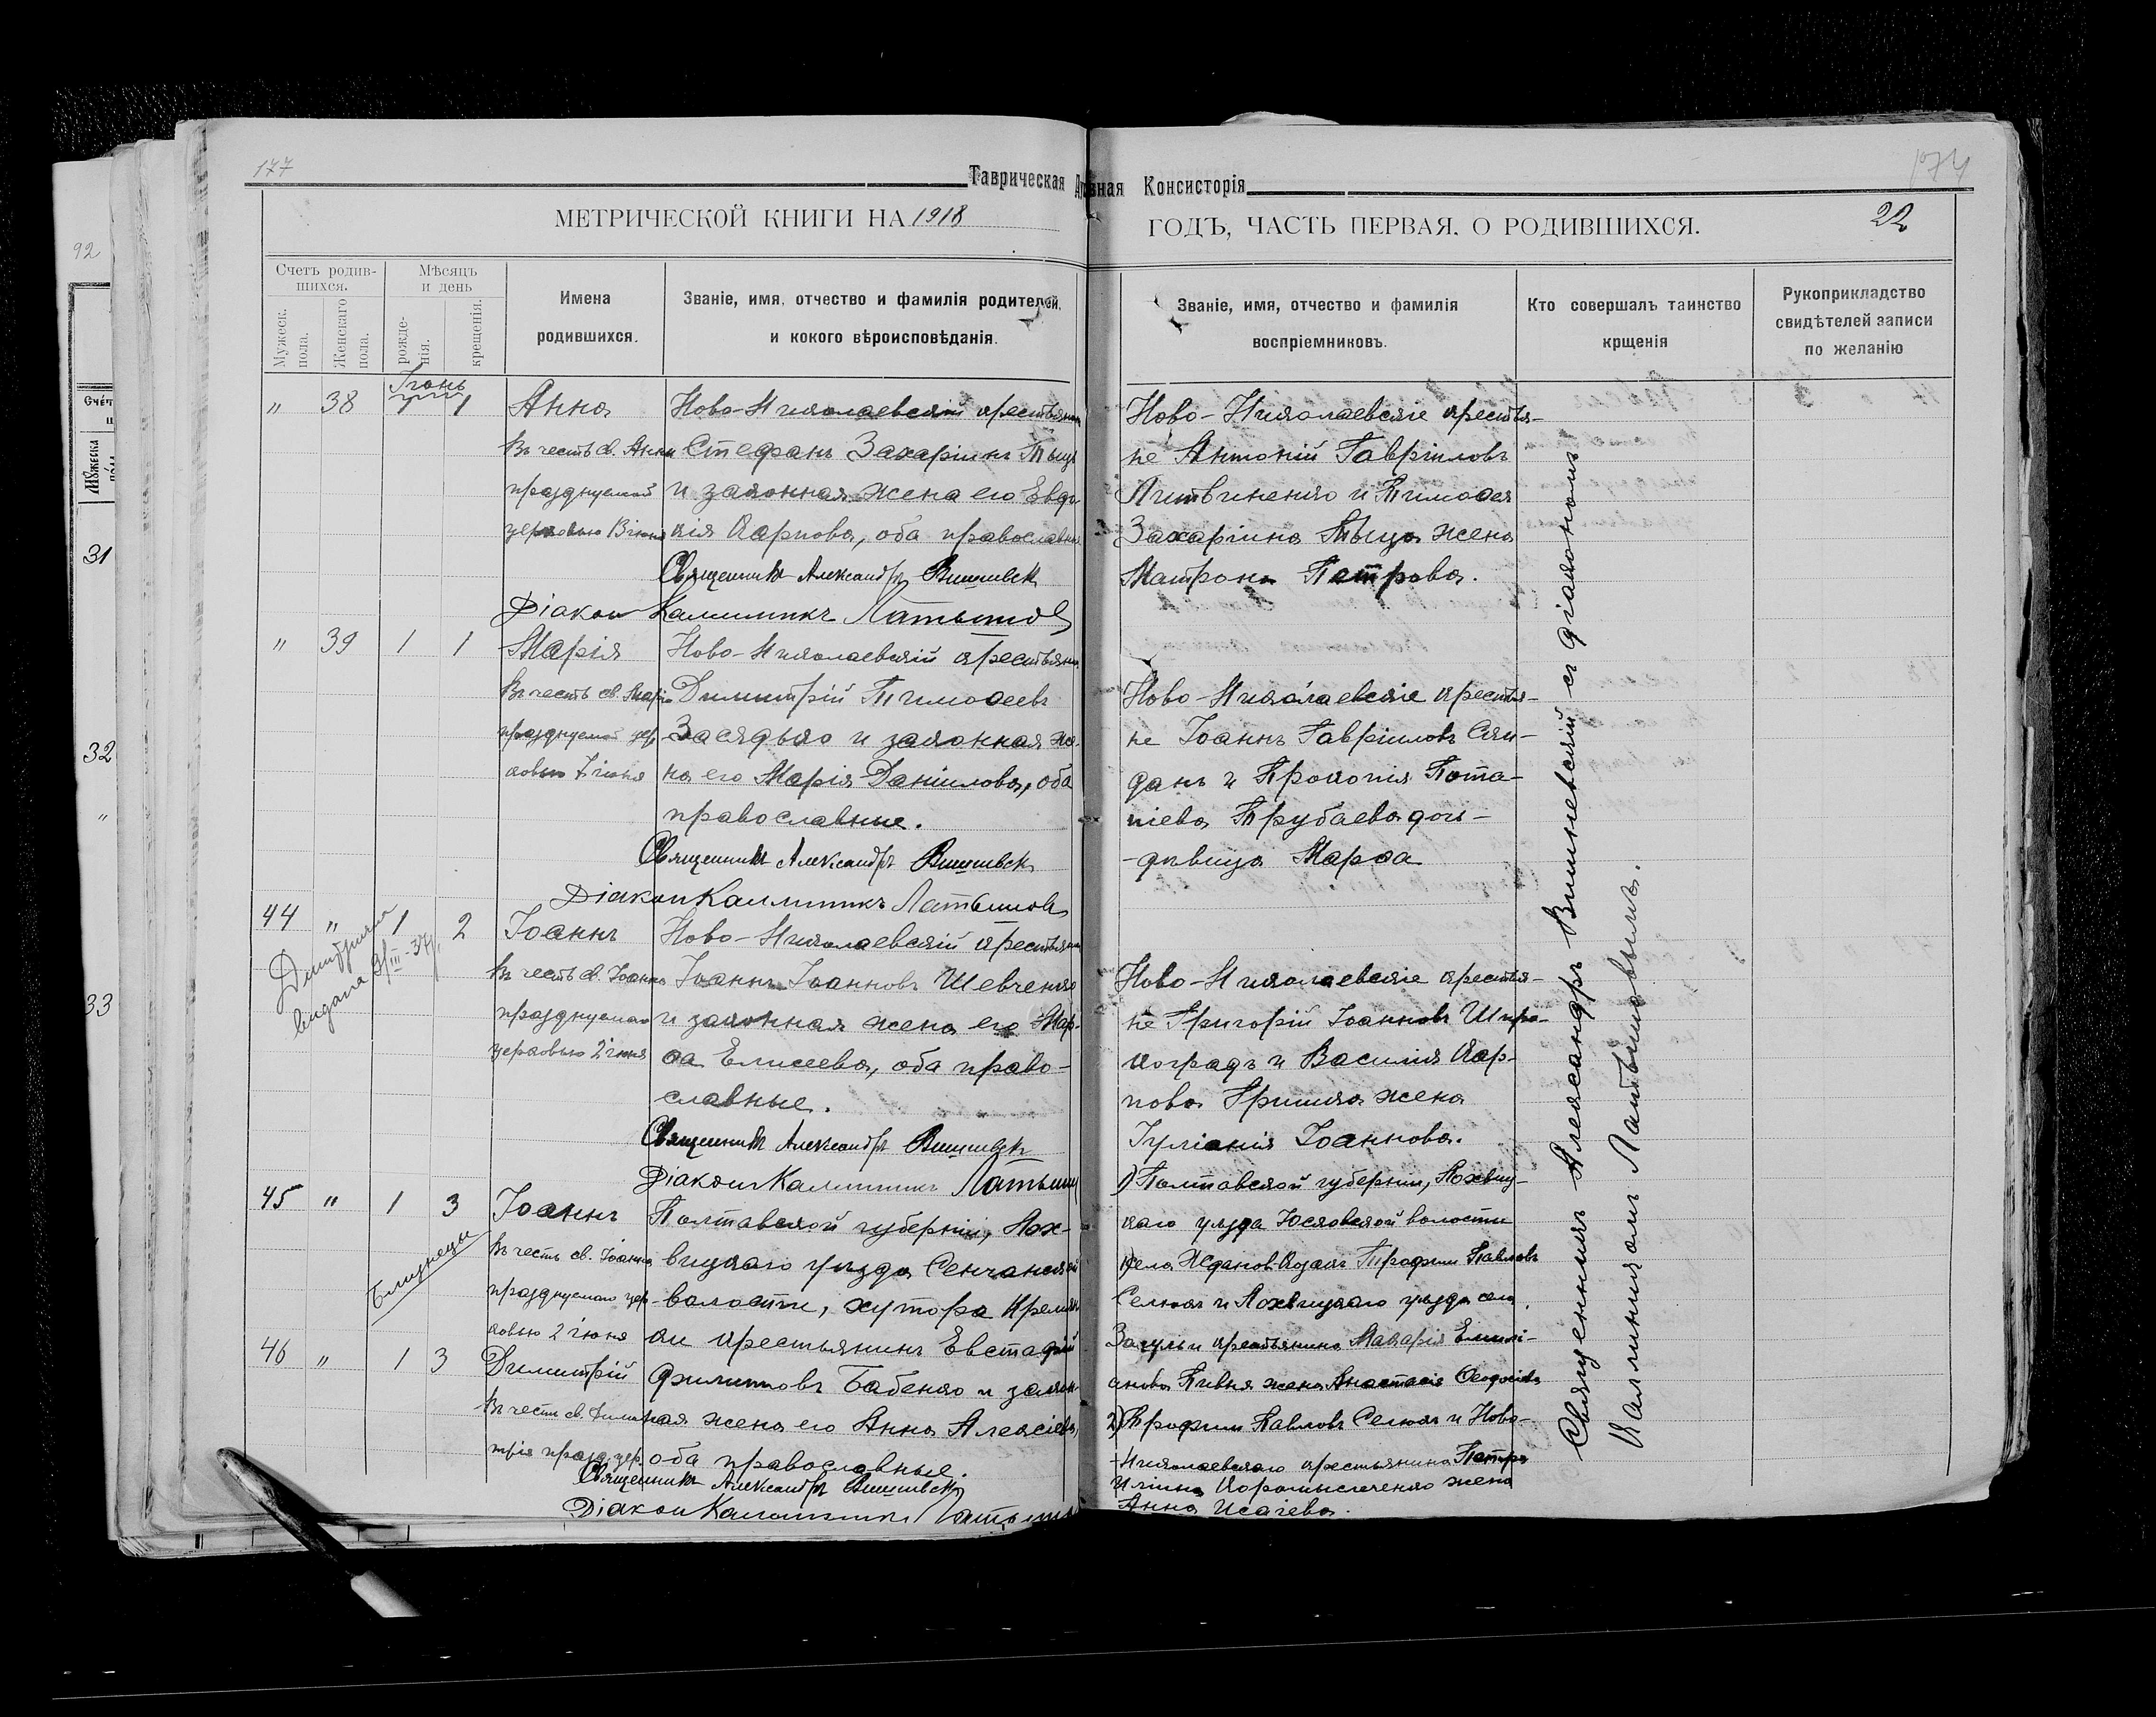 177
174
Таврическая Духовная Консисторія
МЕТРИЧЕСКОЙ КНИГИ НА 1918
ГОДЪ, ЧАСТЬ ПЕРВАЯ. О РОДИВШИХСЯ.
22
Счетъ родив-
шихся.
Мужеск.
пола.
Женскаго
пола.
Мѣсяцъ
и день
рожде-
нія.
крещенія.
Имена
родившихся.
Званіе, имя, отчество и фамилія родителей,
и кокого вѣроисповѣданія.
Званіе, имя, отчество и фамилія
воспріемниковъ.
Кто совершалъ таинство
крщенія
Рукоприкладство
свидѣтелей записи
по желанію
92
31
32
"
33
Іюнь
" 38 1 1
Анна
Въ честь св. Анны
празднуемой
церковью 13 іюня
Ново-Николаевскій крестьянин
Стефанъ Захаріинъ
и законная жена его Евдо-
кія Карпова, оба православн
Священникъ Александръ Вишневск
Діакон Каллиникъ Латышов
Ново-Николаевскіе крестья-
не Антоній Гавріиловъ
Литвиненко и Тимоѳея
Захаріина жена
Матрона Петрова.
" 39 1 1
Марія
Въ честь св. Маріи
празднуемой цер
ковью 7 іюня
Ново-Николаевскій крестьянин
Димитрій Тимоѳеевъ
Засядько и законная же-
на его Марія Даніилова, оба
православные.
Священникъ Александръ Вишневск
Діакон Каллиникъ Латышовъ
Ново-Николаевскіе крестья-
не Іоаннъ Гавріиловъ
данъ и Прокопія Пота-
піева Трубаева дочь-
-дѣвица Марѳа
44 " 1 2
выдана 9/III-37г.
Іоаннъ
Въ честь св. Іоанна
празднуемаго
церковью 2 іюня
Ново-Николаевскій крестьянин
Іоаннъ Іоанновъ Шевченко
и законная жена его Мар-
ѳа Елисеева, оба право-
славные.
Священникъ Александръ Вишневск
Діакон Каллиникъ Латыш
Ново-Николаевскіе крестья-
не Григорій Іоанновъ
и Василія Кар-
пова Гришка жена
Іуліанія Іоаннова.
45 " 1 3
Близнецы
Іоаннъ
Въ честь св. Іоанна
празднуемаго цер-
ковью 2 іюня
Полтавской губерніи, Лох-
вицкаго уѣзда Сенчанской
волости, хутора
крестьянинъ Евстафій
Филипповъ Бабенко и закон-
ная жена его Анна Алексіева,
оба православные.
Священникъ Александръ Вишневск
Діакон Каллиникъ Латыш
46 " 1 3
Димитрій
Въ честь св. Дими
трія празд. цер.
1) Полтавской губерніи, Лохвиц-
каго уѣзда Юсковской волости
села Жданов Козакъ Трофим Павловъ
Селюкъ и Лохвицкаго уѣзда села
крестьянина Макарія Емилі-
анова Пивня жена Анастасія Ѳеодосіева
2) Трофим Павловъ Селюкъ и Ново-
-Николаевскаго крестьянина Петра
Иліина Коромысличенко жена
Анна Исаіева.
Священникъ Александръ Вишневскій съ діакономъ
Каллиникомъ Латышовымъ.